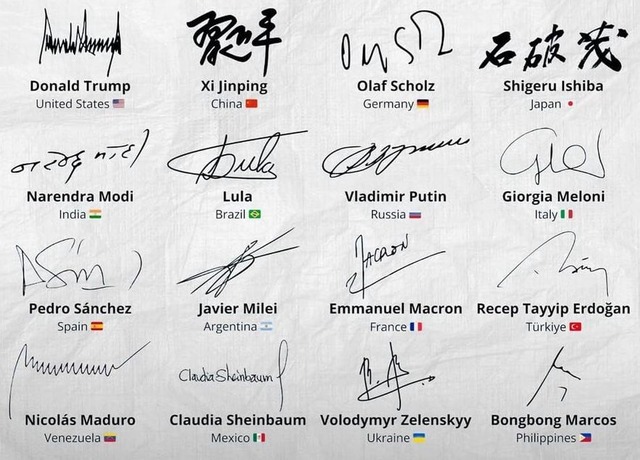 Donald Trump
United States
Xi Jinping
China
Olaf Scholz
Germany
石破茂
Shigeru Ishiba
Japan
Narendra Modi
India
Lula
Lula
Brazil
Vladimir Putin
Russia
Giorgia Meloni
Italy
Pedro Sánchez
Spain
Javier Milei
Argentina
MACRON
Emmanuel Macron
France
Recep Tayyip Erdoğan
Türkiye
Nicolás Maduro
Venezuela
Claudia Sheinbaum
Claudia Sheinbaum
Mexico
Volodymyr Zelenskyy
Ukraine
Bongbong Marcos
Philippines